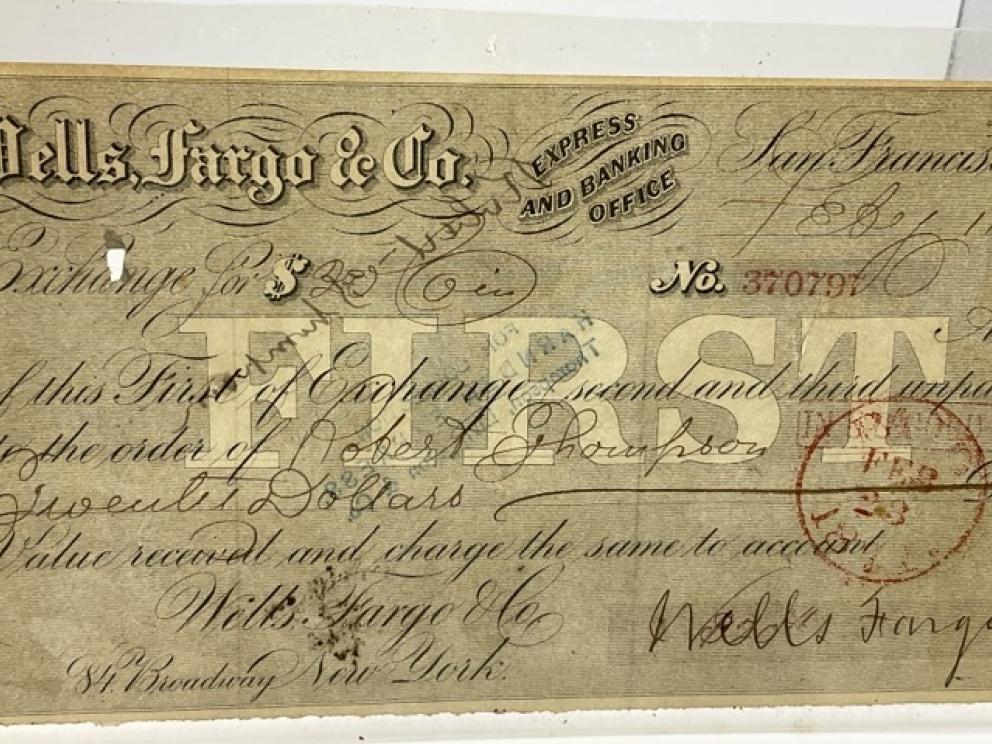 Wells, Fargo & Co. EXPRESS AND BANKING OFFICE San Francis
Feby 1
Exchange for $ 20 Coin No. 370797
FIRST
of this First of Exchange, second and third unpa
to the order of Robert Thompson
Twenty Dollars
Value received and charge the same to account
Wells, Fargo & Co Wells Fargo
84 Broadway New York.
FEB
23